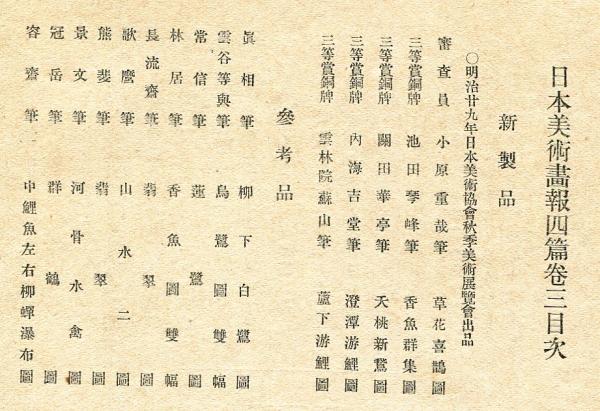 日本美術畫報四篇卷三目次
新製品
〇明治廿九年日本美術協會秋季美術展覽會出品
審查員 小原重哉筆 草花喜鵲圖
三等賞銅牌 池田琴峰筆 香魚群集圖
三等賞銅牌 關田華亭筆 夭桃新鶩圖
三等賞銅牌 內海吉堂筆 澄潭游鯉圖
三等賞銅牌 雲林院蘇山筆 蘆下游鯉圖
參考品
眞相筆 柳下白鷺圖
雲谷等與筆 烏鷺圖雙幅
常信筆 蓮鷺圖
林居筆 香魚圖雙幅
長流齋筆 翡翠圖
歌麿筆 山水二圖
熊斐筆 翡翠圖
景文筆 河骨水禽圖
冠岳筆 群鶴圖
容齋筆 中鯉魚左右柳蟬瀑布圖